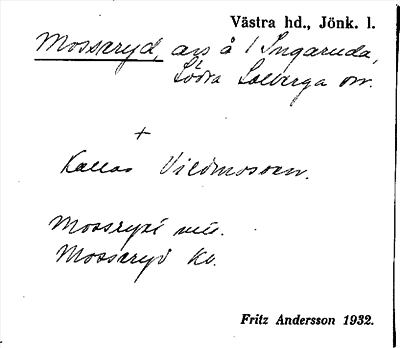 Västra hd., Jönk. l.
Mossaryd, avs å 1 Ingaruda,
Södra Solberga sn.
+
Kallas Vildmossen.
Mossryd
Mossaryd Kv.
Fritz Andersson 1932.